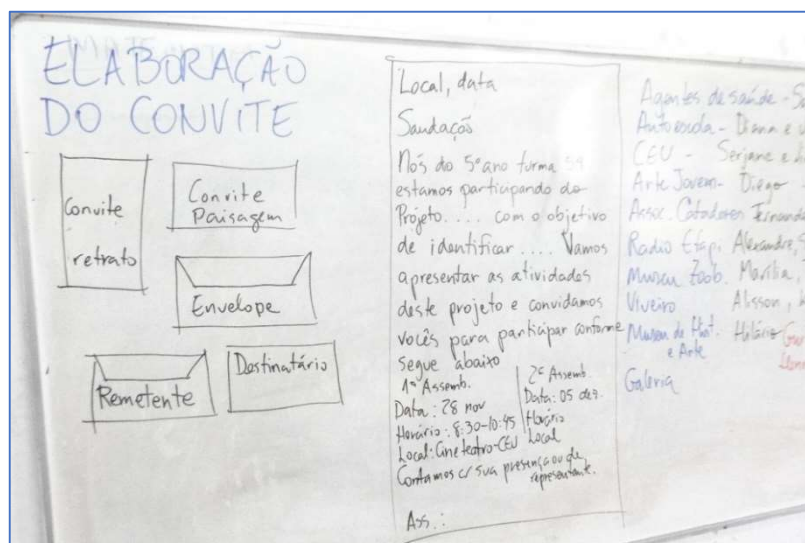 ELABORAÇÃO
DO CONVITE
Convite
retrato
Convite
Paisagem
Envelope
Remetente
Destinatário
Local, data
Saudação
Nós do 5º ano turma 59
estamos participando do
Projeto.... com o objetivo
de identificar .... Vamos
apresentar as atividades
deste projeto e convidamos
vocês para participar conforme
segue abaixo
1ª Assemb.
Data: 28 nov
Horário: 8:30-10:45
Local: Cine teatro-CEU
2ª Assemb.
Data: 05 dez.
Horário
Local
Contamos c/ sua presença ou de
representante.
Ass.:
Agentes de saúde -
Autoescola - Diana e
CEU - Serjane e
Arte Jovem - Diego
Assoc. Catadores Fernanda
Radio Etap. Alexandre,
Museu Zoob. Marília,
Viveiro Alisson,
Museu de Hist. Hilário
e Arte
Galeria